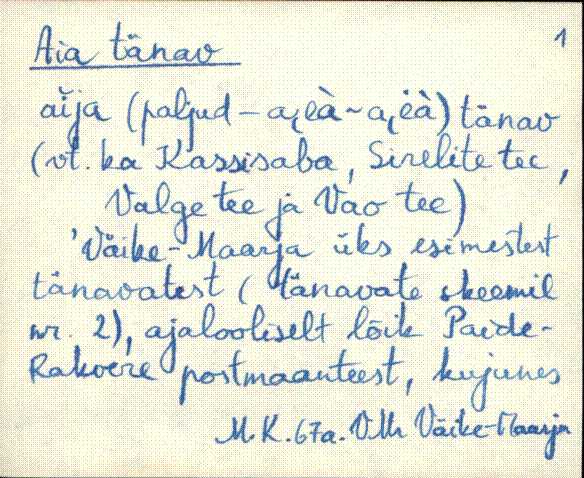 Aia tänav 1
aĭja (paljud – a̭eà ~ a̭ëà) tänav
(vt. ka Kassisaba, Sirelite tee,
Valge tee ja Vao tee)
'Väike-Maarja üks esimestest
tänavatest (tänavate skeemil
nr. 2), ajalooliselt lõik Paide-
Rakvere postmaanteest, kujunes
M.K. 67a. VMr Väike-Maarja